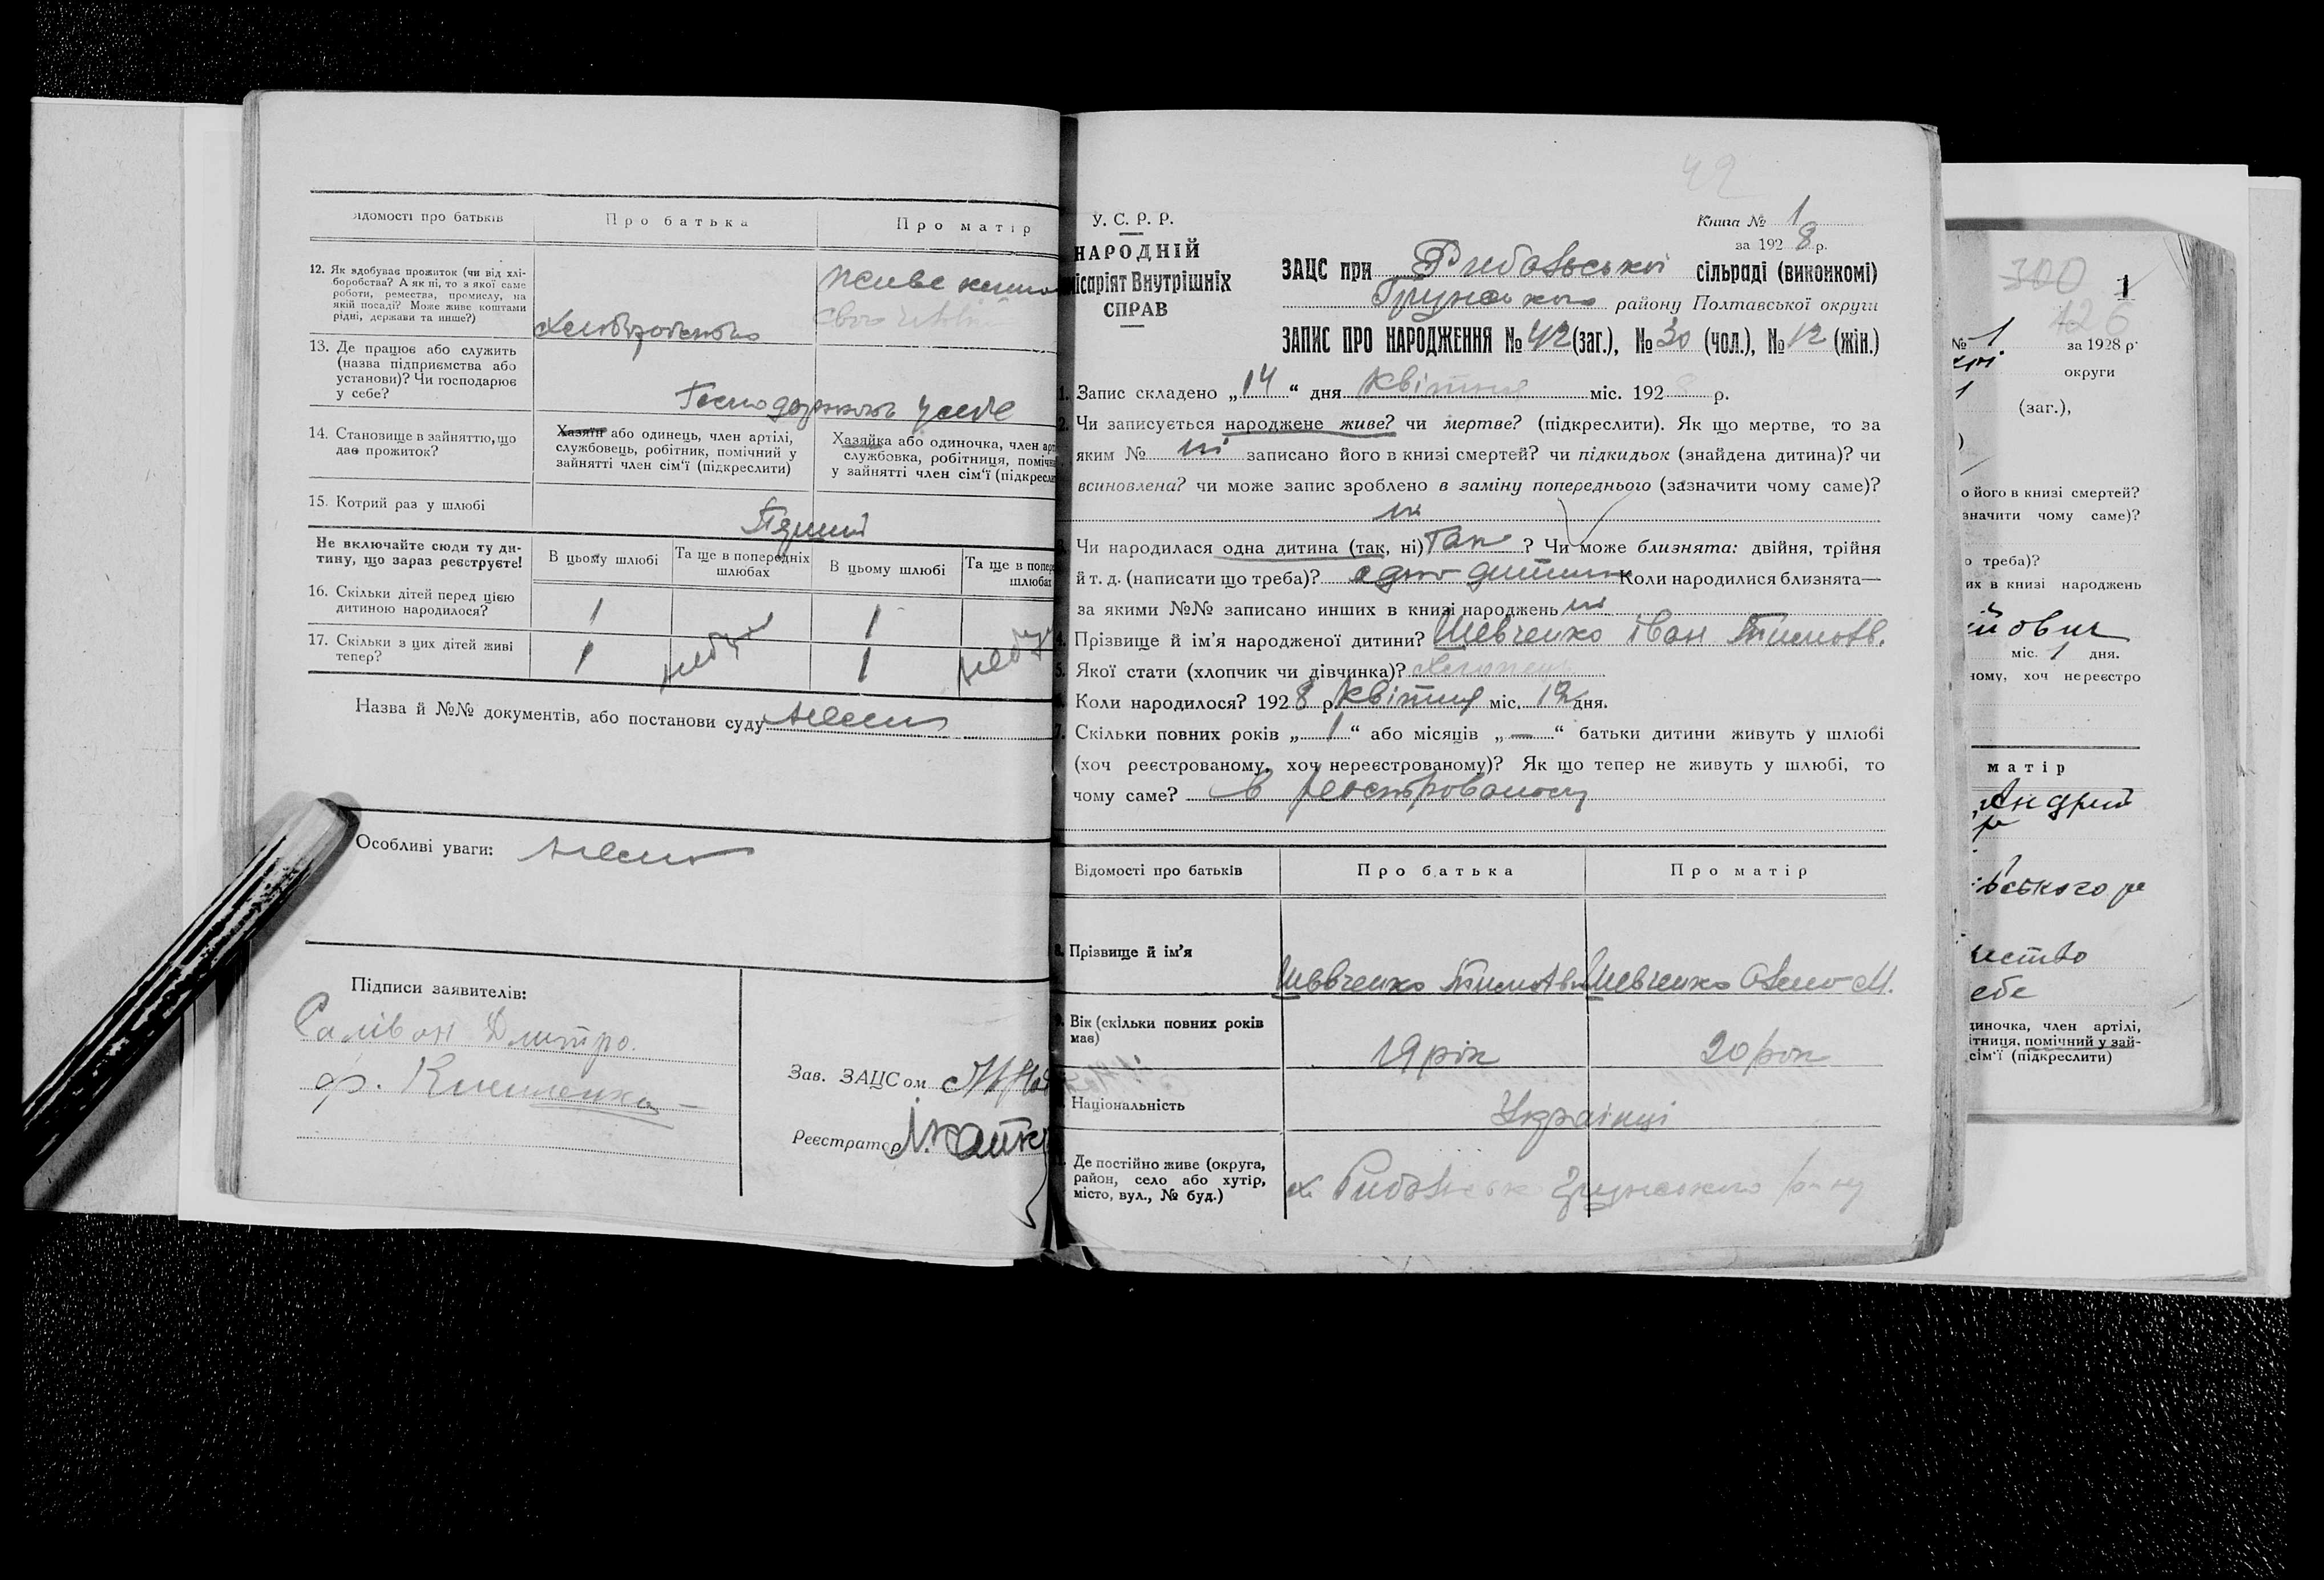 ідомості про батьків
Про батька
Про матір
12. Як здобуває прожиток (чи від хлі-
боробства? А як ні, то з якої саме
роботи, ремества, промислу, на
якій посаді? Може живе коштами
рідні, держави та инше?)
Живе
13. Де працює або служить
(назва підприємства або
установи)? Чи господарює
у себе?
14. Становище в зайняттю, що
дає прожиток?
Хазяїн або одинець, член артілі,
службовець, робітник, помічний у
зайнятті член сім'ї (підкреслити)
Хазяйка або одиночка, член арт
службовка, робітниця, помічн
у зайнятті член сім'ї (підкресли
15. Котрий раз у шлюбі
Перший
Не включайте сюди ту ди-
тину, що зараз реєструєте!
В цьому шлюбі
Та ще в попередніх
шлюбах
В цьому шлюбі
Та ще в попере
шлюбах
16. Скільки дітей перед цією
дитиною народилося?
1
1
17. Скільки з цих дітей живі
тепер?
1
1
Назва й №№ документів, або постанови суду
Особливі уваги:
Підписи заявителів:
Салівон Дмитро.
Зав. ЗАЦСом
Реєстратор
42
У. С. Р. Р.
НАРОДНІЙ
місаріят Внутрішніх
СПРАВ
Книга № 1
за 1928 р.
ЗАЦС при Рибальської сільраді (виконкомі)
Грунського району Полтавської округи
ЗАПИС ПРО НАРОДЖЕННЯ № 42 (заг.), № 30 (чол.), № 12 (жін.)
1. Запис складено „14“ дня Квітня міс. 1928 р.
2. Чи записується народжене живе? чи мертве? (підкреслити). Як що мертве, то за
яким № ні записано його в книзі смертей? чи підкидьок (знайдена дитина)? чи
всиновлена? чи може запис зроблено в заміну попереднього (зазначити чому саме)?
ні
Чи народилася одна дитина (так, ні) Так ? Чи може близнята: двійня, трійня
й т. д. (написати що треба)? одно дитина Коли народилися близнята—
за якими №№ записано инших в книзі народжень ні
4. Прізвище й ім'я народженої дитини? Шевченко Іван Тимотв.
5. Якої стати (хлопчик чи дівчинка)? Хлопець
Коли народилося? 1928 р. Квітня міс. 12 дня.
7. Скільки повних років „1“ або місяців „—“ батьки дитини живуть у шлюбі
(хоч реєстрованому, хоч нереєстрованому)? Як що тепер не живуть у шлюбі, то
чому саме? в реєстрованому
Відомості про батьків
Про батька
Про матір
8. Прізвище й ім'я
Шевченко
Шевченко
М.
9. Вік (скільки повних років
має)
19 рік
20 рік
Національність
Українці
Де постійно живе (округа,
район, село або хутір,
місто, вул., № буд.)
х. Рибальськ Грунського р-ну
300
1
126
№ 1
за 1928 р.
округи
1
(заг.),
о його в книзі смертей?
значити чому саме)?
о треба)?
их в книзі народжень
міс. 1 дня.
ному, хоч нереєстро
матір
Андрий
вського р
ство
ебе
диночка, член артілі,
ітниця, помічний у зай-
сім'ї (підкреслити)